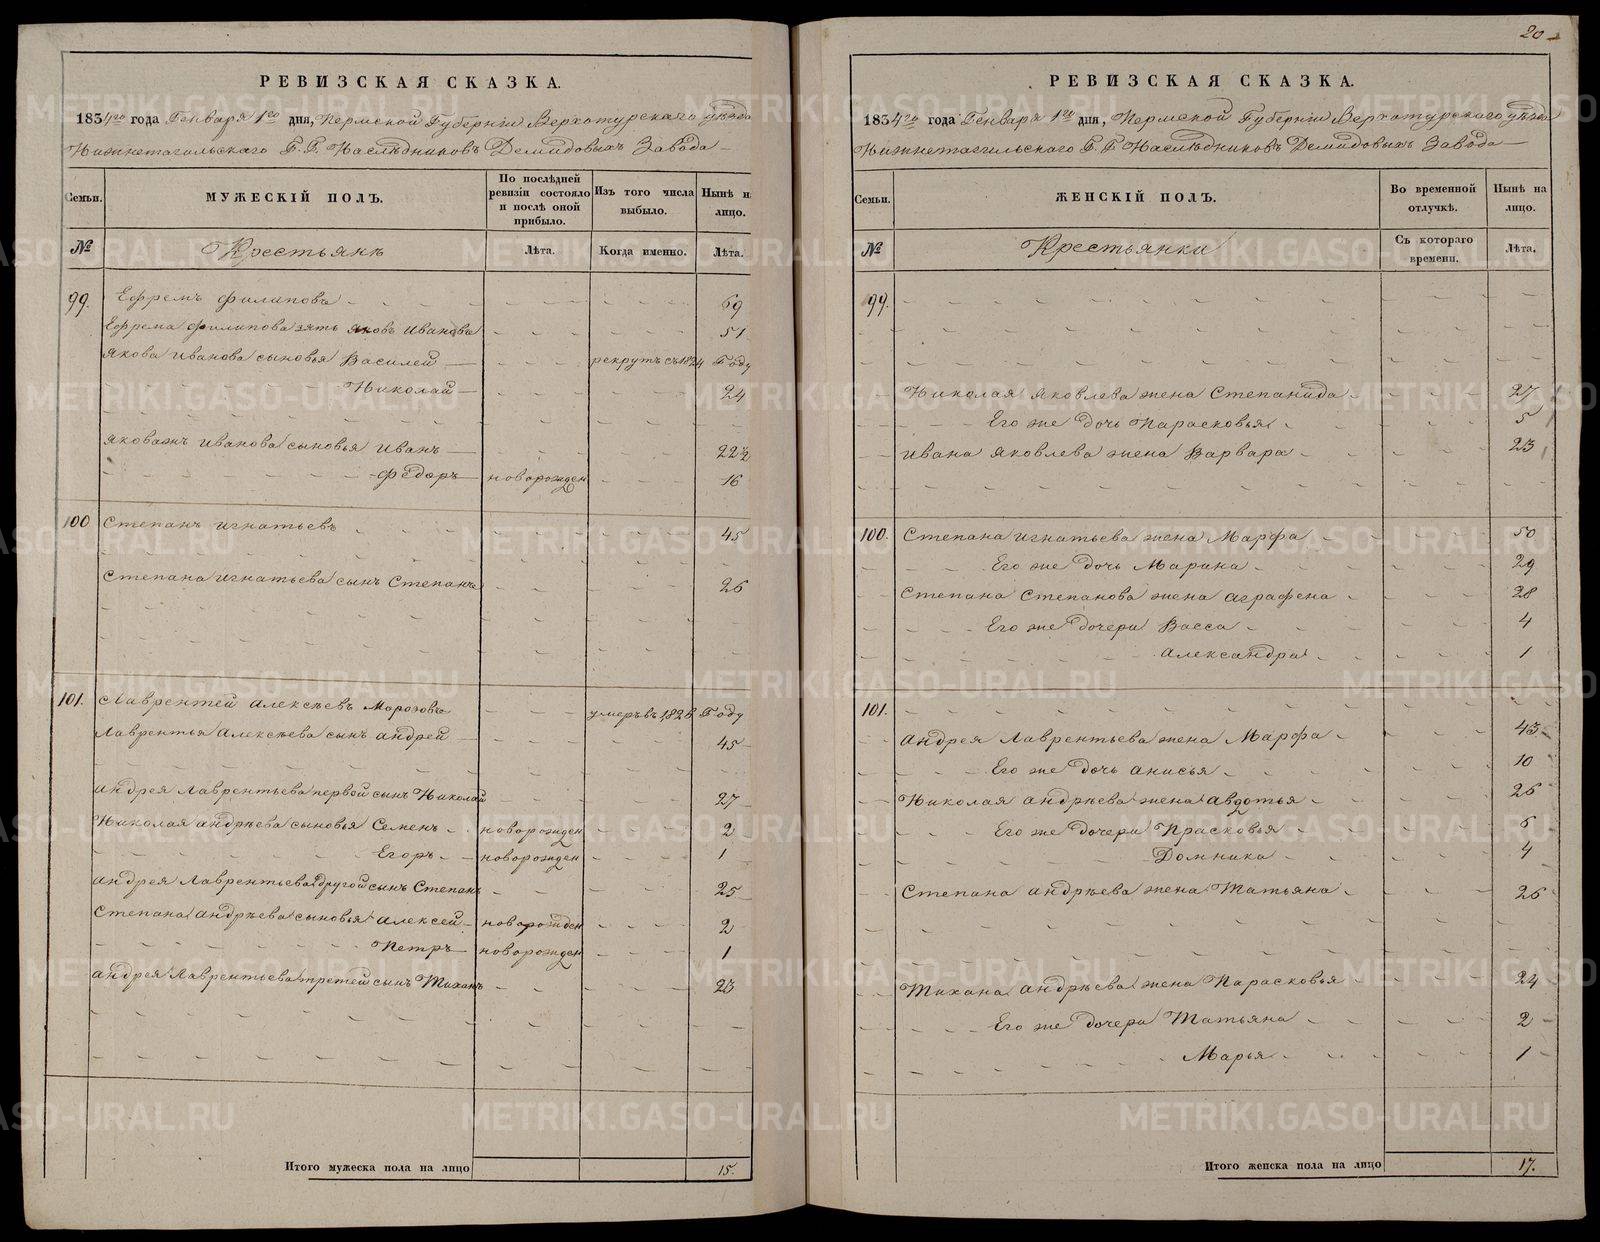 20
РЕВИЗСКАЯ СКАЗКА.
1834го года Генваря 1го дня, Пермской Губерніи Верхотурскаго уѣзда
Нижнетагильскаго Г. Г. Наслѣдниковъ Демидовыхъ Завода
Семьи. МУЖЕСКІЙ ПОЛЪ. По послѣдней ревизіи состояло и послѣ оной прибыло. Изъ того числа выбыло. Нынѣ на лицо.
№ Крестьянъ Лѣта. Когда именно. Лѣта.
99. Ефремъ Филиповъ 69
Ефрема Филипова зять Яковъ Ивановъ 51
Якова Иванова сыновья Василей рекрутъ съ 1824 Году
Николай 24
Яковажъ Иванова сыновья Иванъ 22½
Федоръ новорожден 16
100 Степанъ Игнатьевъ 45
Степана Игнатьева сынъ Степанъ 26
101. Лаврентей Алексѣевъ Морозовъ умеръ въ 1825 Году
Лаврентья Алексѣева сынъ Андрей 45
Андрея Лаврентьева первой сынъ Николай 27
Николая Андрѣева сыновья Семенъ новорожден 2
Егоръ новорожден 1
Андрея Лаврентьева другой сынъ Степанъ 25
Степана Андрѣева сыновья Алексей новорожден 2
Петръ новорожден 1
Андрея Лаврентьева третей сынъ Тиханъ 23
Итого мужеска пола на лицо 15.
РЕВИЗСКАЯ СКАЗКА.
1834го года Генваря 1го дня, Пермской Губерніи Верхотурскаго уѣзда
Нижнетагильскаго Г. Г. Наслѣдниковъ Демидовыхъ Завода
Семьи. ЖЕНСКІЙ ПОЛЪ. Во временной отлучкѣ. Нынѣ на лицо.
№ Крестьянки Съ котораго времени. Лѣта.
99.
Николая Яковлева жена Степанида 27
Его же дочь Парасковья 5
Ивана Яковлева жена Варвара 23
100. Степана Игнатьева жена Марфа 50
Его же дочь Марина 29
Степана Степанова жена Аграфена 28
Его же дочери Васса 4
Александра 1
101.
Андрея Лаврентьева жена Марфа 43
Его же дочь Анисья 10
Николая Андрѣева жена Авдотья 26
Его же дочери Прасковья 6
Домника 4
Степана Андрѣева жена Татьяна 26
Тихана Андрѣева жена Парасковья 24
Его же дочери Татьяна 2
Марья 1
Итого женска пола на лицо 17.
METRIKI.GASO-URAL.RU